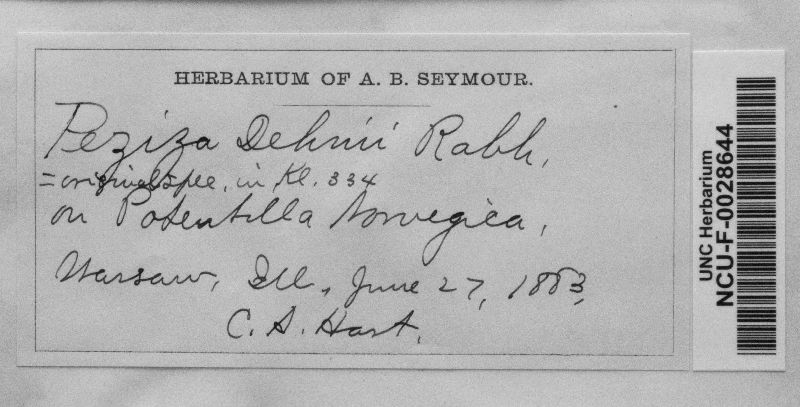 HERBARIUM OF A. B. SEYMOUR.
Peziza Dehnii Rabh.
= original spec. in Kl. 334
on Potentilla Norvegica,
Warsaw, Ill., June 27, 1883,
C. A. Hart.
UNC Herbarium
NCU-F-0028644